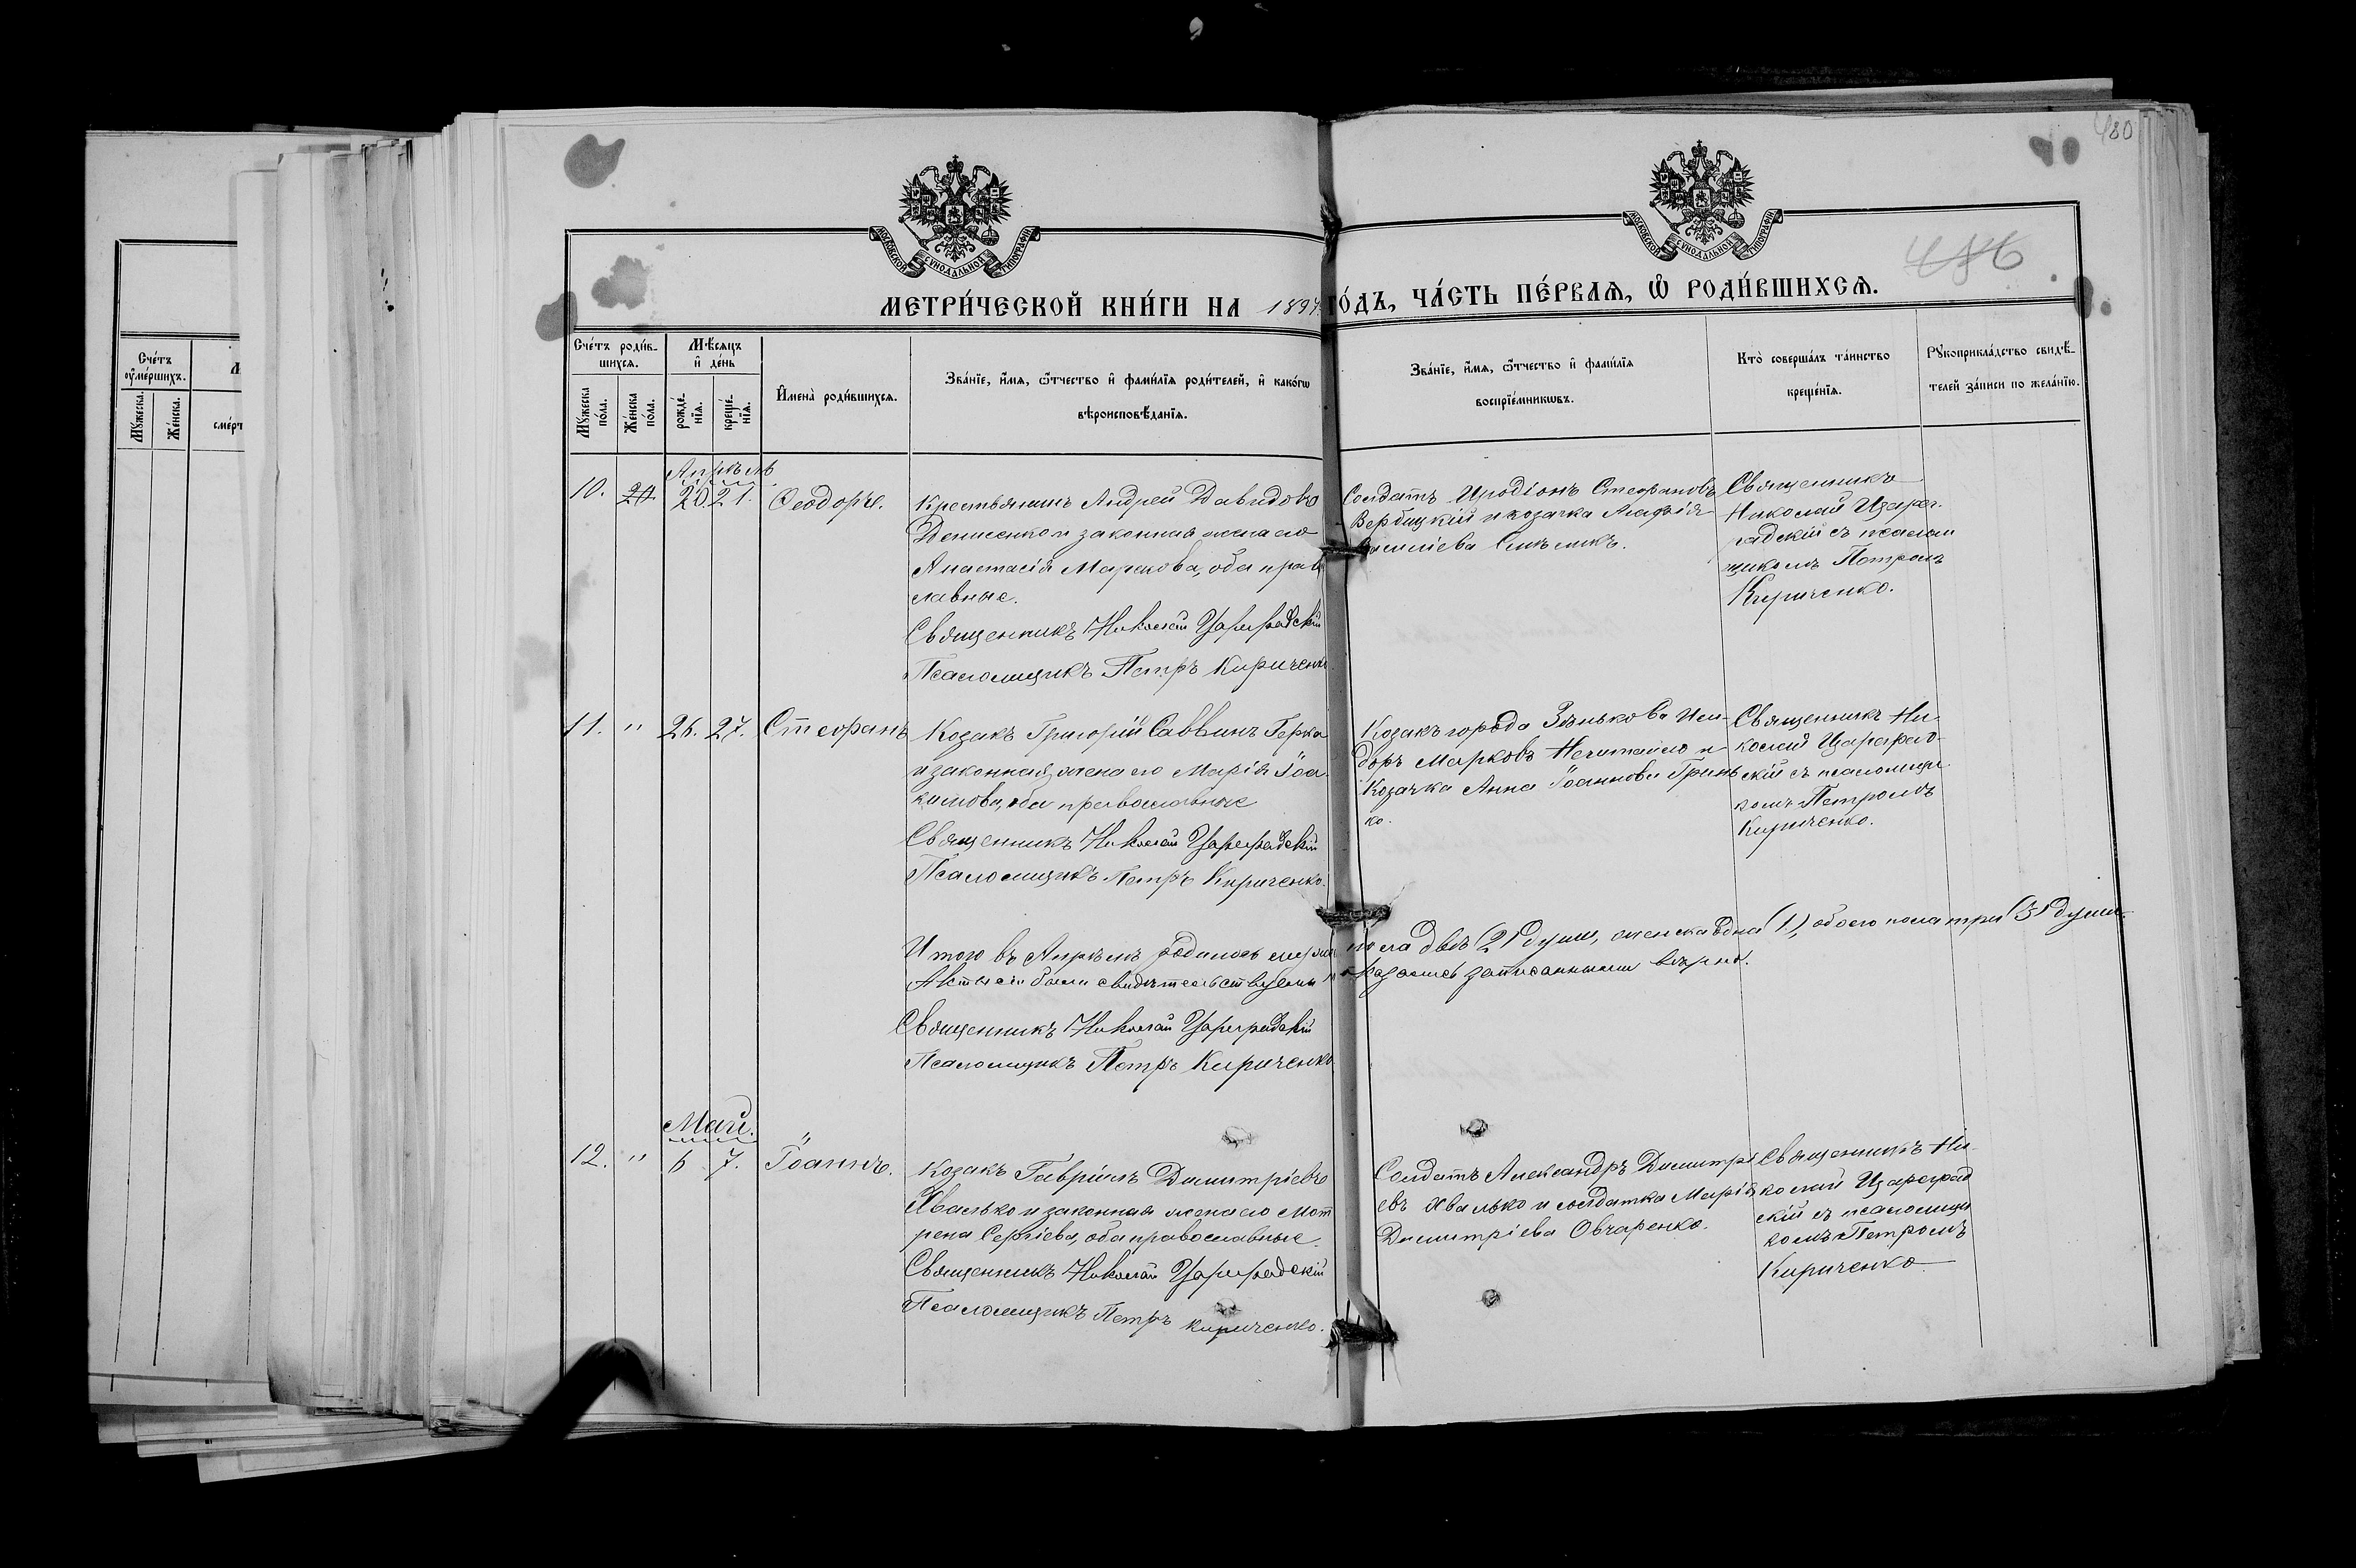 480
486
МОСКОВСКОЙ СѴНОДАЛЬНОЙ ТИПОГРАФІИ
МОСКОВСКОЙ СѴНОДАЛЬНОЙ ТИПОГРАФІИ
МЕТРИ́ЧЕСКОЙ КНИ́ГИ НА 1897 ГО́ДЪ, ЧА́СТЬ ПЕ́РВАѦ, Ѡ РОДИ́ВШИХСѦ.
Сче́тъ
ᲂу҆ме́ршихъ.
Мꙋ́жеска.
Же́нска.
Сче́тъ роди́в-
шихсѧ.
Мꙋ́жеска
по́ла.
Же́нска
по́ла.
Мѣ́сѧцъ
и҆ де́нь
рожде́-
нїѧ.
креще́-
нїѧ.
И҆мена̀ роди́вшихсѧ.
Зва́нїе, и҆́мѧ, ѻ҆́тчество и҆ фами́лїѧ роди́телей, и҆ како́гѡ
вѣроисповѣ́данїѧ.
Зва́нїе, и҆́мѧ, ѻ҆́тчество и҆ фами́лїѧ
воспрїе́мникѡвъ.
Кто̀ соверша́лъ та́инство
креще́нїѧ.
Рꙋкоприкла́дство свидѣ́-
телей за́писи по жела́нїю.
Апрѣль
10. 20. 21. Ѳеодоръ.
Крестьянинъ Андрей Давидовъ
Денисенко и законная жена его
Анастасія Маркова, оба право
славные.
Священникъ Николай Цареградскій
Псаломщикъ Петръ Кириченко
Солдатъ Иродіонъ Стефановъ
Вербицкій и козачка Агафія
Василіева
Священникъ
Николай Царег-
радскій съ псалом
щикомъ Петромъ
Кириченко.
11. " 26. 27. Стефанъ
Козакъ Григорій Саввинъ Герка
и законная жена его Марія Іоа
кимова, оба православные
Священникъ Николай Цареградскій
Псаломщикъ Петръ Кириченко.
Козакъ города Зѣнькова Иси-
доръ Марковъ Нечитайло и
Козачка Анна Іоаннова Гринь
ко.
Священникъ Ни-
колай Цареград-
скій съ псаломщи
комъ Петромъ
Кириченко.
Итого въ Апрѣлѣ родилось мужска пола двѣ (2) души, женска одна (1), обоего пола три (3) души.
Акты сіи были свидѣтельствуемы и оказались записанными вѣрно.
Священникъ Николай Цареградскій
Псаломщикъ Петръ Кириченко
Май.
12. " 6 7. Іоаннъ.
Козакъ Гавріилъ Димитріевъ
Хвалько и законная жена его Мот
рена Сергіева, оба православные.
Священникъ Николай Цареградскій
Псаломщикъ Петръ Кириченко.
Солдатъ Александръ Димитрі
евъ Хвалько и солдатка Марія
Димитріева Овчаренко.
Священникъ Ни-
колай Цареград
скій съ псаломщи
комъ Петромъ
Кириченко